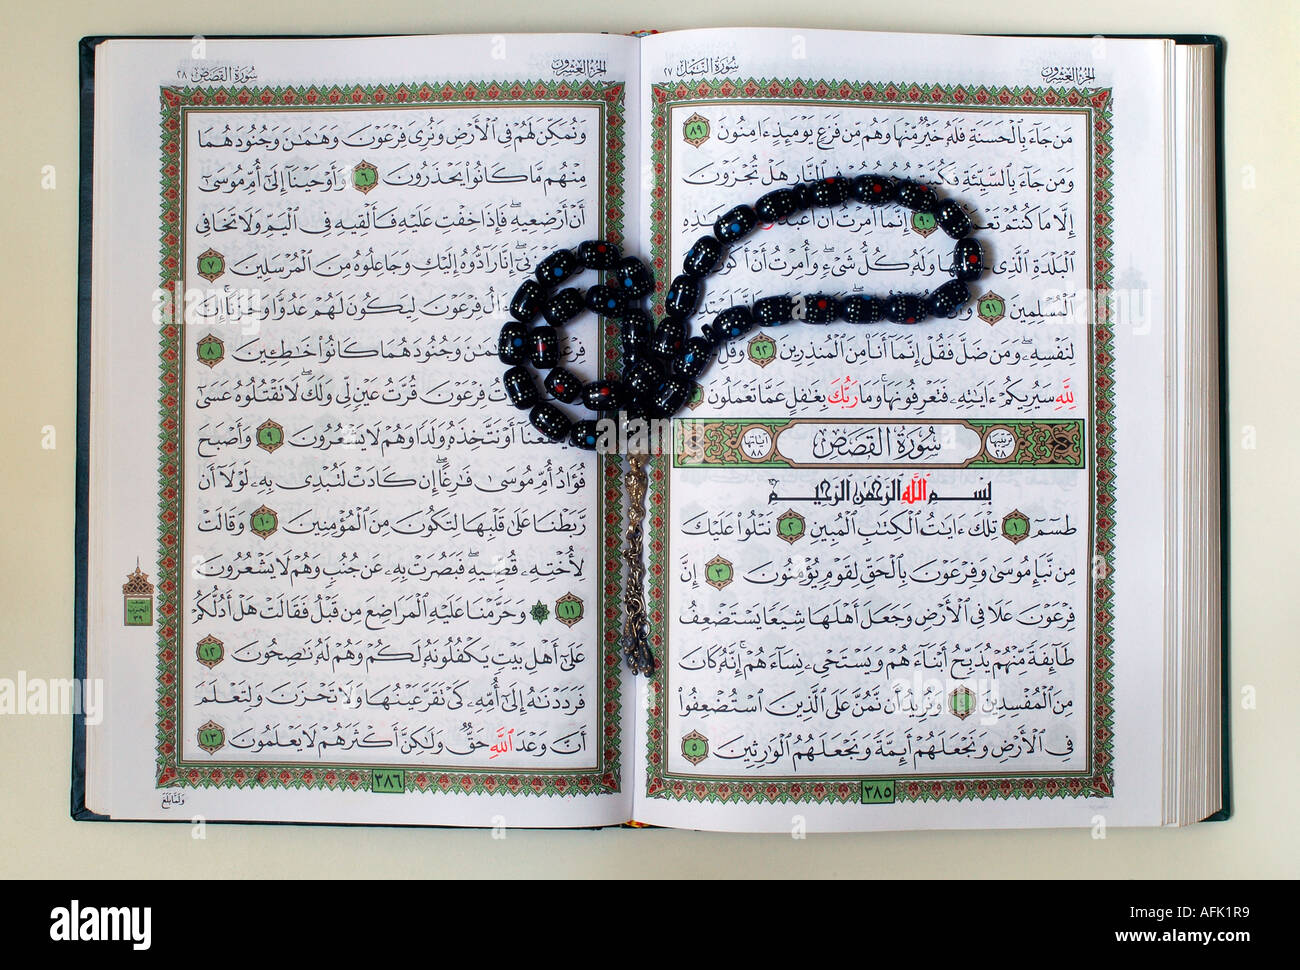 سُورَةُ النَّمْل ٢٧
الجُزْءُ العِشْرُون
مَن جَآءَ بِالْحَسَنَةِ فَلَهُۥ خَيْرٌ مِّنْهَا وَهُم مِّن فَزَعٍ يَوْمَئِذٍ ءَامِنُونَ ٨٩
وَمَن جَآءَ بِالسَّيِّئَةِ فَكُبَّتْ النَّارِ هَلْ تُجْزَوْنَ
إِلَّا مَا كُنتُمْ ٩٠ إِنَّمَآ أُمِرْتُ أَنْ أَعْبُدَ هَٰذِهِ
الْبَلْدَةِ الَّذِى وَلَهُۥ كُلُّ شَىْءٍ ۖ وَأُمِرْتُ أَنْ أَكُونَ
الْمُسْلِمِينَ ٩١
لِنَفْسِهِۦ ۖ وَمَن ضَلَّ فَقُلْ إِنَّمَآ أَنَا۠ مِنَ الْمُنذِرِينَ ٩٢ وَقُلِ
لِلَّهِ سَيُرِيكُمْ ءَايَٰتِهِۦ فَتَعْرِفُونَهَا ۚ وَمَا رَبُّكَ بِغَٰفِلٍ عَمَّا تَعْمَلُونَ
ترتيبها ٢٨ سُورَةُ القَصَصِ آياتها ٨٨
بِسْمِ اللَّهِ الرَّحْمَٰنِ الرَّحِيمِ
طسٓمٓ ١ تِلْكَ ءَايَٰتُ الْكِتَٰبِ الْمُبِينِ ٢ نَتْلُوا۟ عَلَيْكَ
مِن نَّبَإِ مُوسَىٰ وَفِرْعَوْنَ بِالْحَقِّ لِقَوْمٍ يُؤْمِنُونَ ٣ إِنَّ
فِرْعَوْنَ عَلَا فِى الْأَرْضِ وَجَعَلَ أَهْلَهَا شِيَعًا يَسْتَضْعِفُ
طَآئِفَةً مِّنْهُمْ يُذَبِّحُ أَبْنَآءَهُمْ وَيَسْتَحْىِۦ نِسَآءَهُمْ ۚ إِنَّهُۥ كَانَ
مِنَ الْمُفْسِدِينَ ٤ وَنُرِيدُ أَن نَّمُنَّ عَلَى الَّذِينَ اسْتُضْعِفُوا۟
فِى الْأَرْضِ وَنَجْعَلَهُمْ أَئِمَّةً وَنَجْعَلَهُمُ الْوَٰرِثِينَ ٥
٣٨٥
سُورَةُ القَصَصِ ٢٨
الجُزْءُ العِشْرُون
وَنُمَكِّنَ لَهُمْ فِى الْأَرْضِ وَنُرِىَ فِرْعَوْنَ وَهَٰمَٰنَ وَجُنُودَهُمَا
مِنْهُم مَّا كَانُوا۟ يَحْذَرُونَ ٦ وَأَوْحَيْنَآ إِلَىٰٓ أُمِّ مُوسَىٰٓ
أَنْ أَرْضِعِيهِ ۖ فَإِذَا خِفْتِ عَلَيْهِ فَأَلْقِيهِ فِى الْيَمِّ وَلَا تَخَافِى
إِنَّا رَآدُّوهُ إِلَيْكِ وَجَاعِلُوهُ مِنَ الْمُرْسَلِينَ ٧
ءَالُ فِرْعَوْنَ لِيَكُونَ لَهُمْ عَدُوًّا وَحَزَنًا ۗ إِنَّ
فِرْعَوْنَ وَهَٰمَٰنَ وَجُنُودَهُمَا كَانُوا۟ خَٰطِـِٔينَ ٨
فِرْعَوْنَ قُرَّتُ عَيْنٍ لِّى وَلَكَ ۖ لَا تَقْتُلُوهُ عَسَىٰٓ
يَنفَعَنَآ أَوْ نَتَّخِذَهُۥ وَلَدًا وَهُمْ لَا يَشْعُرُونَ ٩ وَأَصْبَحَ
فُؤَادُ أُمِّ مُوسَىٰ فَٰرِغًا ۖ إِن كَادَتْ لَتُبْدِى بِهِۦ لَوْلَآ أَن
رَّبَطْنَا عَلَىٰ قَلْبِهَا لِتَكُونَ مِنَ الْمُؤْمِنِينَ ١٠ وَقَالَتْ
لِأُخْتِهِۦ قُصِّيهِ ۖ فَبَصُرَتْ بِهِۦ عَن جُنُبٍ وَهُمْ لَا يَشْعُرُونَ
١١ ۞ وَحَرَّمْنَا عَلَيْهِ الْمَرَاضِعَ مِن قَبْلُ فَقَالَتْ هَلْ أَدُلُّكُمْ
عَلَىٰٓ أَهْلِ بَيْتٍ يَكْفُلُونَهُۥ لَكُمْ وَهُمْ لَهُۥ نَٰصِحُونَ ١٢
فَرَدَدْنَٰهُ إِلَىٰٓ أُمِّهِۦ كَىْ تَقَرَّ عَيْنُهَا وَلَا تَحْزَنَ وَلِتَعْلَمَ
أَنَّ وَعْدَ اللَّهِ حَقٌّ وَلَٰكِنَّ أَكْثَرَهُمْ لَا يَعْلَمُونَ ١٣
٣٨٦
وَلَمَّا بَلَغَ
نصف
الحزب
٣٩
alamy
Image ID: AFK1R9
www.alamy.com